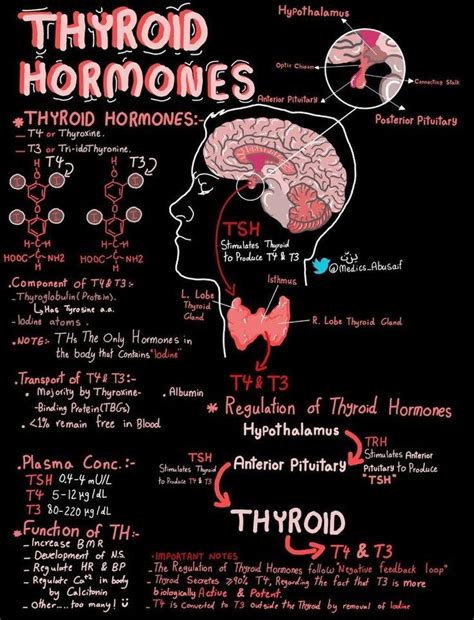 THYROID
HORMONES
Hypothalamus
Optic Chiasm
Connecting Stalk
Anterior Pituitary
Posterior Pituitary
* THYROID HORMONES:-
— T4 or Thyroxine.
— T3 or Tri-idoThyronine.
T4
T3
HO
HO
I
I
I
I
I
I
I
O
O
HOOC
NH2
HOOC
NH2
. Component of T4 & T3 :-
- Thyroglobulin (Protein).
↳ Has Tyrosine a.a.
- Iodine atoms.
. NOTE:- THs The Only Hormones in
the body that Contains "Iodine"
TSH
Stimulates Thyroid
to Produce T4 & T3
@Medics_Abusaif
Isthmus
L. Lobe
Thyroid
Gland
R. Lobe Thyroid Gland
T4 & T3
. Transport of T4 & T3:-
• Majority by Thyroxine-
-Binding Protein (TBGs)
• <1% remain free in Blood
. Albumin
* Regulation of Thyroid Hormones
Hypothalamus
TRH
Stimulates Anterior
Pituitary to Produce
"TSH"
Anterior Pituitary
TSH
Stimulates Thyroid
to Produce T4 & T3
THYROID
T4 & T3
. Plasma Conc. :-
TSH 0.4-4 mU/L
T4 5-12 µg/dL
T3 80-220 µg/dL
* Function of TH:-
- Increase BMR
- Development of N.S.
- Regulate HR & BP
- Regulate Ca+2 in body
by Calcitonin
- Other.... too many!
• IMPORTANT NOTES
- The Regulation of Thyroid Hormones follow "Negative feedback loop"
- Thyroid Secretes ≥90% T4, Regarding the fact that T3 is more
biologically Active & Potent.
- T4 is Converted to T3 Outside the Thyroid by removal of Iodine